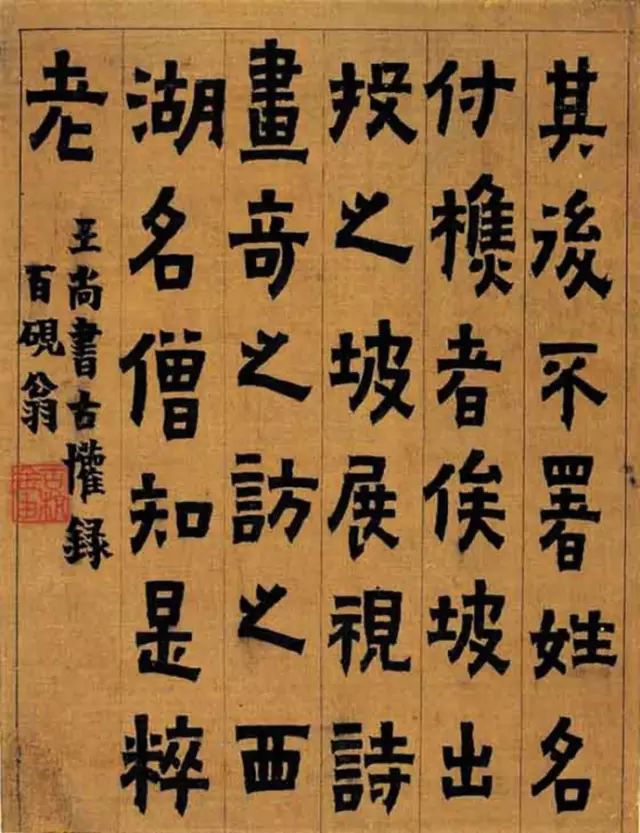 其後不署姓名
付樵者俟坡出
投之坡展視詩
畫竒之訪之西
湖名僧知是粹
老
王尚書古懽録
百硯翁